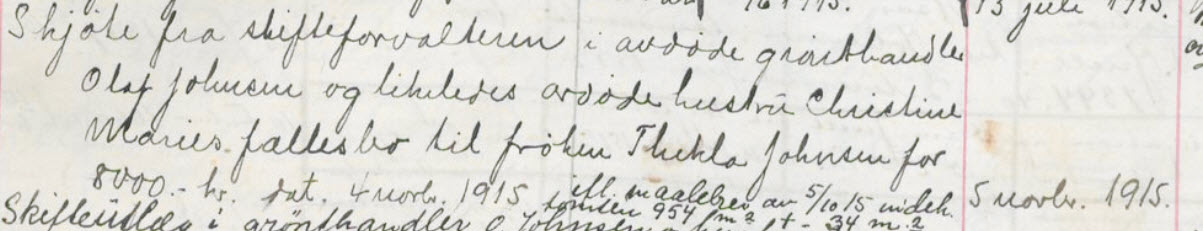 16 1915. 13 juli 1915.
Skjöte fra skifteforvalteren i avdöde grönthandler
Olaf Johnsen og likeledes avdöde hustru Christine
Maries fællesbo til fröken Thekla Johnsen for
8000.- kr. dat. 4 novbr. 1915 ifl. maalebrev av 5/10 15 indeh. 5 novbr. 1915.
tomten 954 m2 + 34 m.2
Skifteutlæg i grönthandler O Johnsen